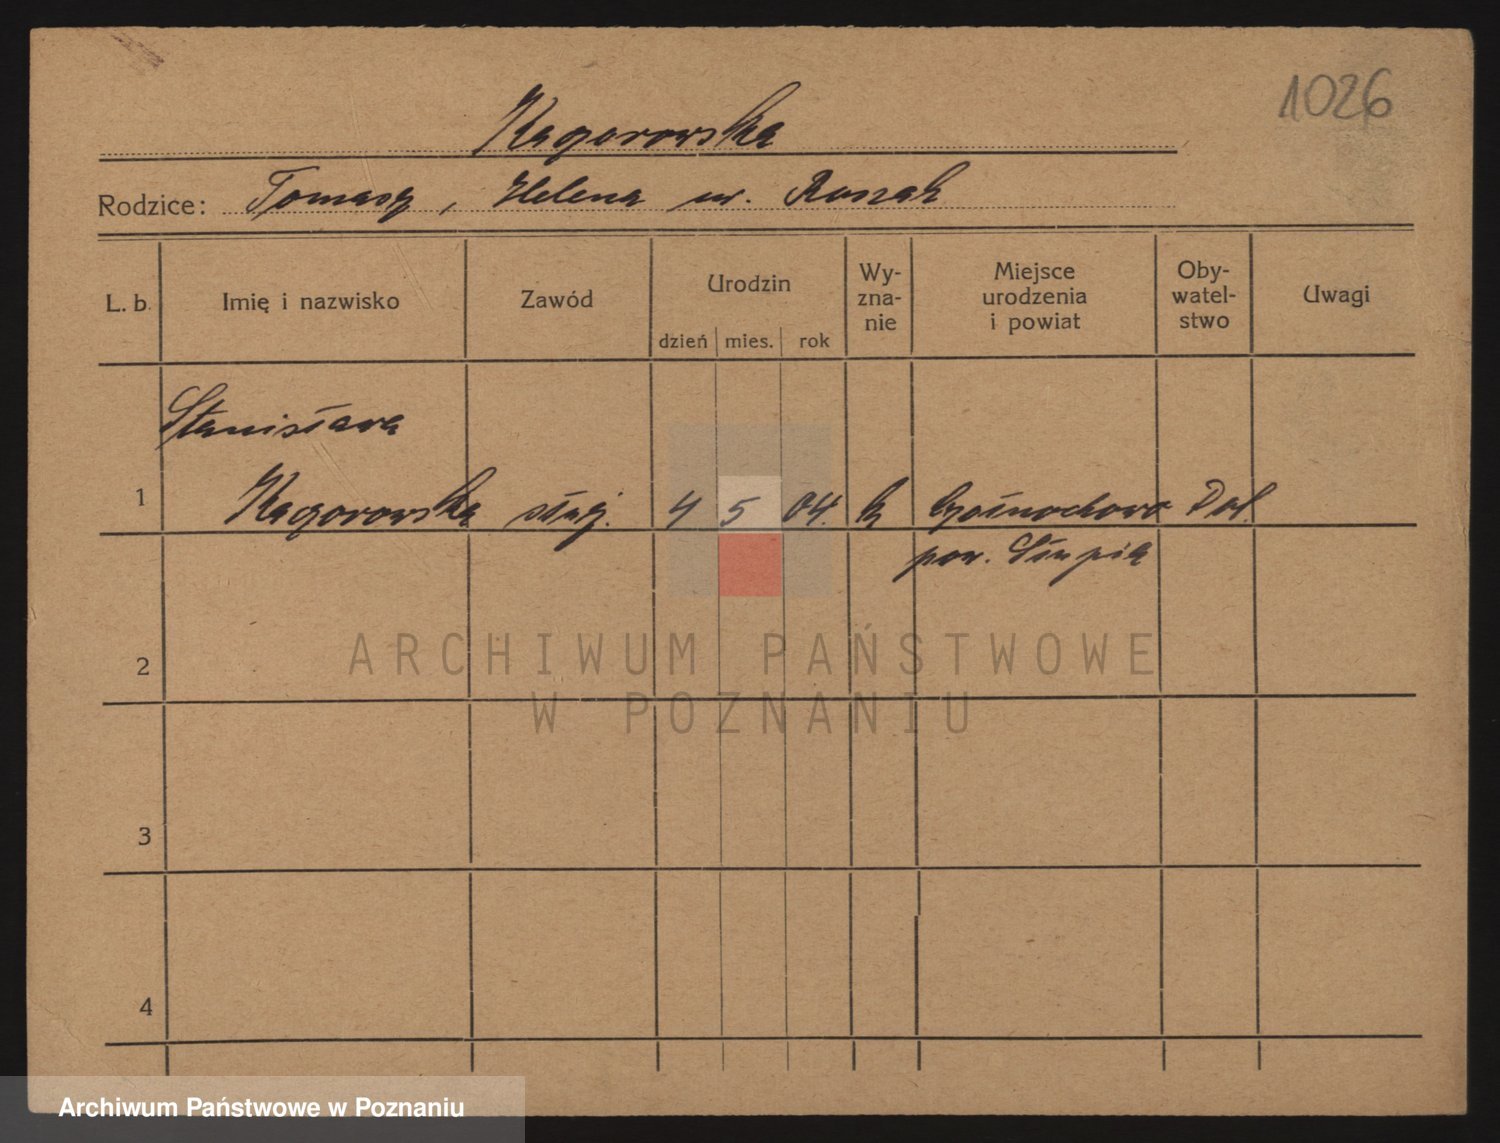 1026
Kagorowska
Rodzice: Tomasz, Helena ur. Roszak
L. b. Imię i nazwisko Zawód Urodzin dzień mies. rok Wy-zna-nie Miejsce urodzenia i powiat Oby-watel-stwo Uwagi
Stanisława
1 Kagorowska służ. 4 5 04. k Pol.
pow. Słupia
2
3
4
ARCHIWUM PAŃSTWOWE
W POZNANIU
Archiwum Państwowe w Poznaniu